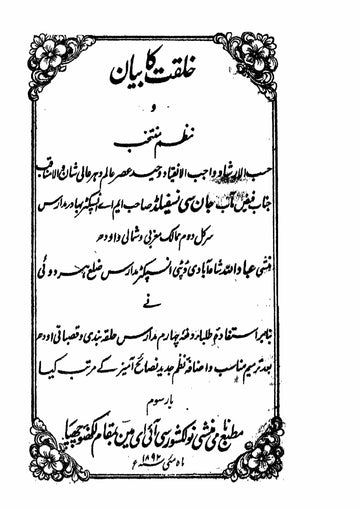 خلقت کا بیان
و
نظم منتخب
حسب الارشاد واجب الانقیاد وحید عصر عالم دہر عالی شان والا مناقب
جناب فیض مآب جان سی نسفیلڈ صاحب ایم اے انسپکٹر بہادر مدارس
سرکل دوم ممالک مغربی وشمالی و اودھ
منشی عباد اللہ شاہ آبادی ڈپٹی انسپکٹر مدارس ضلع ہردوئی
نے
بنابر استفادہ طلبا دفعہ چہارم مدارس حلقہ بندی و قصباتی اودھ
بعد ترمیم مناسب و اضافہ نظم جدید نصائح آمیز کے مرتب کیا
بار سوم
مطبع نامی منشی نولکشور سی آئی ای میں بمقام لکھنؤ چھپا
ماہ مئی سنہ ۱۸۹۲ء